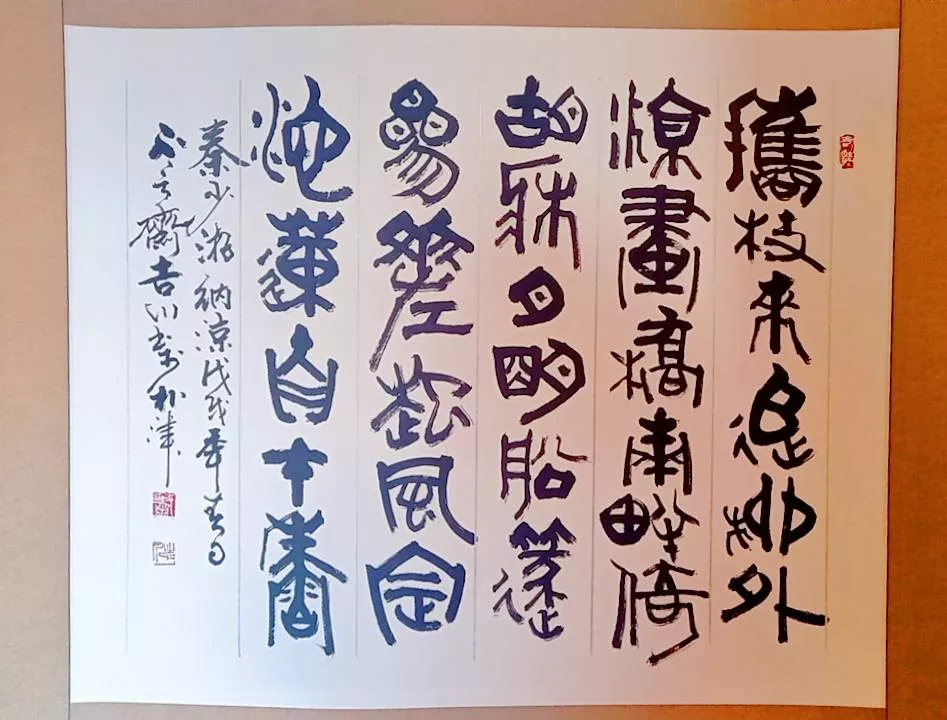 攜杖來追柳外
涼畫橋南畔倚
胡牀月明船篴
參差起風定
池蓮自在香
秦少游納涼戊戌年春日
不言齋吉川書於津